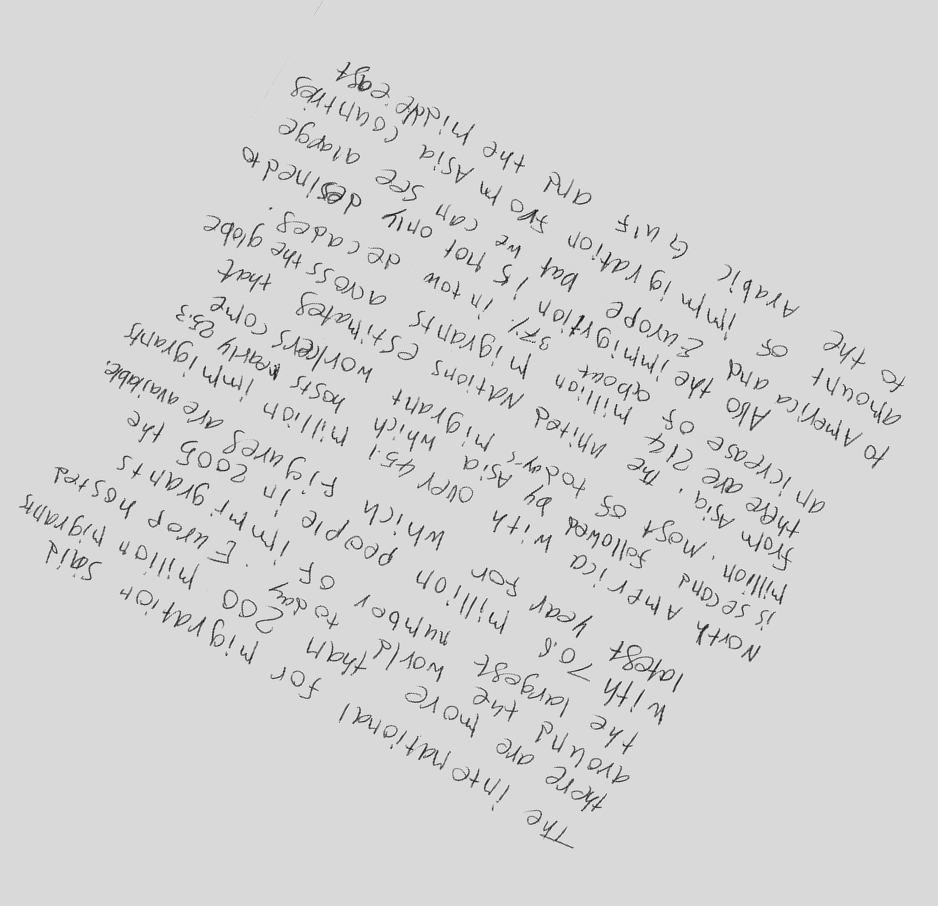 The intenational for migration said
there are more than 200 million migrants
around the world today. Europ hosted
the largest number of immigrants
with 70.6 million people in 2005 the
latest year for which figures are available.
North America with over 45.1 million immigrants
is second followed by Asia which hosts nearly 25.3
million. most of today's migrant workers come
from Asia. The united Nations estimates that
there are 214 million migrants across the globe
an icrease of about 37% in tow decades.
Also the immigrtion is not only desined to
to America and Europe but we can see alarge
amount of immigration from Asia countries
to the Arabic Gulf and the middle east